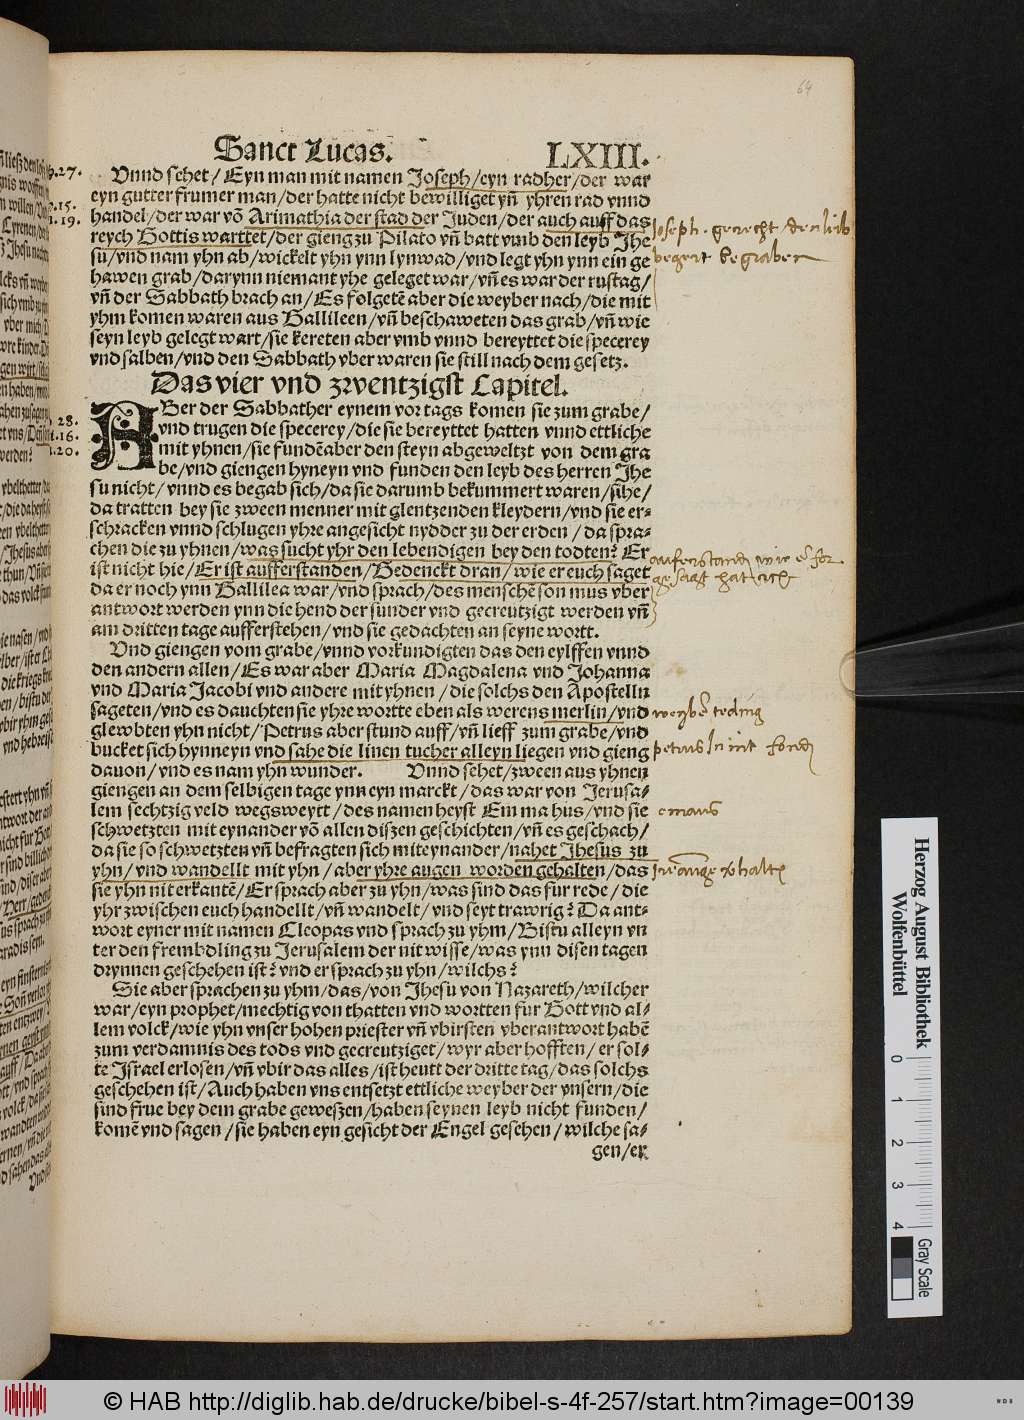 64
Sanct Lucas. LXIII.
Vnnd sehet / Eyn man mit namen Joseph / eyn radher / der war
eyn gutter frumer man / der hatte nicht bewilliget yñ yhren rad vnnd
handel / der war võ Arimathia der stad der Juden / der auch auff das
reych Gottis warttet / der gieng zu Pilato vñ batt vmb den leyb Jhe
su / vnd nam yhn ab / wickelt yhn ynn lynwad / vnd legt yhn ynn ein ge
hawen grab / darynn niemant yhe geleget war / vñ es war der rustag /
vñ der Sabbath brach an / Es folgetē aber die weyber nach / die mit
yhm komen waren aus Gallileen / vñ beschaweten das grab / vñ wie
seyn leyb gelegt wart / sie kereten aber vmb vnnd bereyttet die specerey
vnd salben / vnd den Sabbath vber waren sie still nach dem gesetz.
Das vier vnd zwentzigst Capitel.
ABer der Sabbather eynem vor tags komen sie zum grabe /
vnd trugen die specerey / die sie bereyttet hatten vnnd ettliche
mit yhnen / sie fundē aber den steyn abgeweltzt von dem gra
be / vnd giengen hyneyn vnd funden den leyb des herren Jhe
su nicht / vnnd es begab sich / da sie darumb bekummert waren / sihe /
da tratten bey sie zween menner mit glentzenden kleydern / vnd sie er-
schracken vnnd schlugen yhre angesicht nydder zu der erden / da spra-
chen die zu yhnen / was sucht yhr den lebendigen bey den todten? Er
ist nicht hie / Er ist aufferstanden / Bedenckt dran / wie er euch saget
da er noch ynn Gallilea war / vnd sprach / des menschē son mus vber
antwort werden ynn die hend der sunder vnd gecreutzigt werden vñ
am dritten tage aufferstehen / vnd sie gedachten an seyne wortt.
Vnd giengen vom grabe / vnnd vorkundigten das den eylffen vnnd
den andern allen / Es war aber Maria Magdalena vnd Johanna
vnd Maria Jacobi vnd andere mit yhnen / die solchs den Apostelln
sageten / vnd es dauchten sie yhre wortte eben als werens merlin / vnd
glewbten yhn nicht / Petrus aber stund auff / vñ lieff zum grabe / vnd
bucket sich hynneyn vnd sahe die linen tucher alleyn liegen vnd gieng
dauon / vnd es nam yhn wunder. Vnnd sehet / zween aus yhnen
giengen an dem selbigen tage ynn eyn marckt / das war von Jerusa-
lem sechtzig veld wegs weytt / des namen heyst Emmahus / vnd sie
schwetzten mit eynander võ allen diszen geschichten / vñ es geschach /
da sie so schwetzten vñ befragten sich miteynander / nahet Jhesus zu
yhn / vnd wandellt mit yhn / aber yhre augen worden gehalten / das
sie yhn nit erkantē / Er sprach aber zu yhn / was sind das fur rede / die
yhr zwischen euch handellt / vñ wandelt / vnd seyt trawrig? Da ant-
wort eyner mit namen Cleopas vnd sprach zu yhm / Bistu alleyn vn
ter den frembdling zu Jerusalem der nit wisse / was ynn disen tagen
drynnen geschehen ist? vnd er sprach zu yhn / wilchs?
Sie aber sprachen zu yhm / das / von Jhesu von Nazareth / wilcher
war / eyn prophet / mechtig von thatten vnd wortten fur Gott vnd al-
lem volck / wie yhn vnser hohen priester vñ vbirsten vberantwort habē
zum verdamnis des tods vnd gecreutziget / wyr aber hofften / er sol-
te Israel erlosen / vñ vbir das alles / ist heutt der dritte tag / das solchs
geschehen ist / Auch haben vns entsetzt ettliche weyber der vnsern / die
sind frue bey dem grabe geweszen / haben seynen leyb nicht funden /
komē vnd sagen / sie haben eyn gesicht der Engel gesehen / wilche sa-
gen / er
27.
15.
19.
28.
16.
20.
Joseph. gerecht / den lib
begert begraben
emaus
Herzog August Bibliothek
Wolfenbüttel
0 1 2 3 4
Gray Scale
© HAB http://diglib.hab.de/drucke/bibel-s-4f-257/start.htm?image=00139